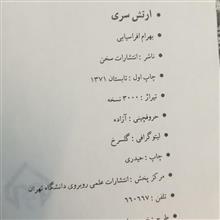 ارتش سری
بهرام افراسیابی
ناشر : انتشارات سخن
چاپ اول : تابستان ۱۳۷۱
تیراژ : ۳۰۰۰ نسخه
حروفچینی : آزاده
لیتوگرافی : گلسرخ
چاپ : حیدری
مرکز پخش : انتشارات علمی روبروی دانشگاه تهران
تلفن : ۶۶۰۶۶۷